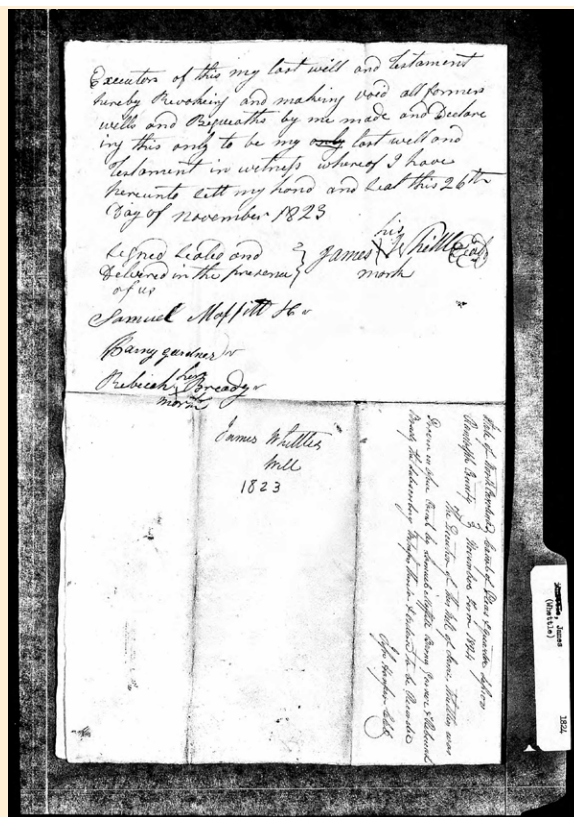 Executors of this my last will and Testament
hereby Revokeing and making void all former
wills and Bequeaths by me made and Declare
ing this only to be my only last will and
Testament in witness whereof I have
hereunto sett my hand and Seal this 26th
Day of november 1823
Signed Sealed and
Delivered in the presence
of us
his
James Whittle Seal
mark
Samuel Moffitt
Barny gardner
her
Rebicah Breády
mark
James Whittles
Will
1823
State of North Carolina Court of Pleas & quarter Sessions
Randolph County November Term 1824
The Execution of this Will of James Whittles was
Proven in open Court by Samuel Moffitt Barny &
the Subscribing thereto & ordered to be Recorded
James
(Whettle)
1824